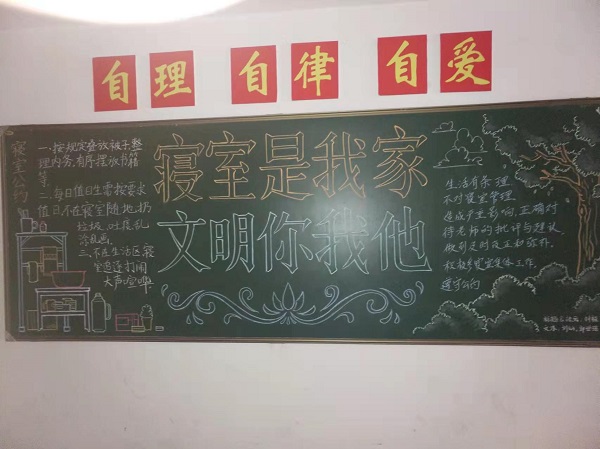 自理 自律 自爱
寝室公约
一.按规定叠放被子整
理内务,有序摆放书籍
等
二.每日值日生需按要求
值日不在寝室随地扔
垃圾.吐痰乱
涂乱画
三.不在生活区寝
室追逐打闹
大声喧哗
寝室是我家
文明你我他
生活有条理
不对寝室管理
造成严重影响,正确对
待老师的批评与建议
做到及时改正和弥补.
积极参与寝室集体工作.
遵守公约